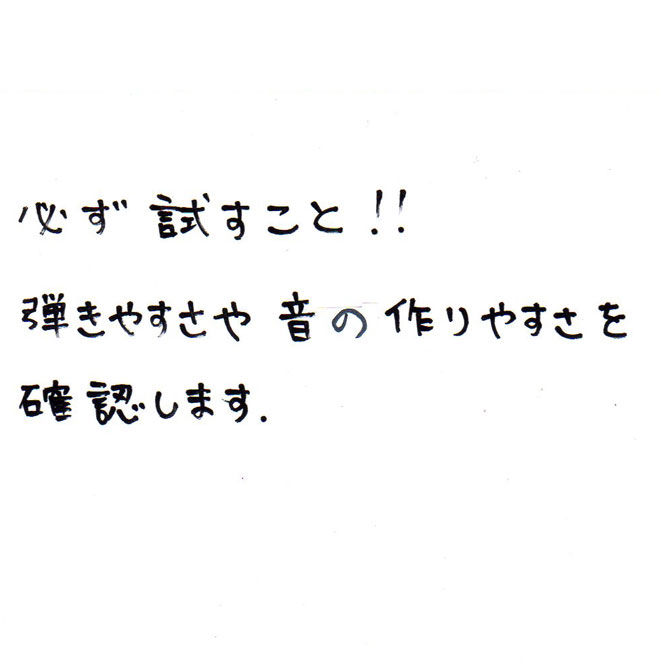 必ず試すこと!!
弾きやすさや音の作りやすさを
確認します.